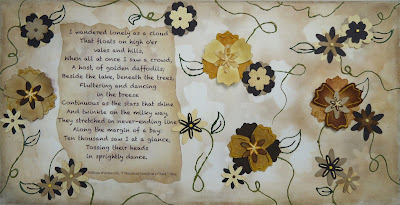 I wandered lonely as a cloud
That floats on high o'er
vales and hills,
When all at once I saw a crowd,
A host of golden daffodils;
Beside the lake, beneath the trees,
Fluttering and dancing
in the breeze
Continuous as the stars that shine
And twinkle on the milky way,
They stretched in never-ending line
Along the margin of a bay:
Ten thousand saw I at a glance,
Tossing their heads
in sprightly dance.